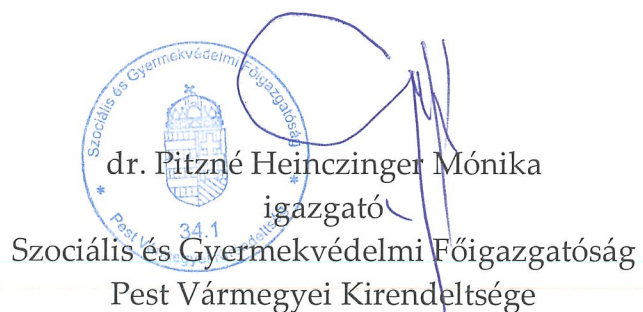 Szociális és Gyermekvédelmi Főigazgatóság
34.1
Pest Vármegyei Kirendeltsége
dr. Pitzné Heinczinger Mónika
igazgató
Szociális és Gyermekvédelmi Főigazgatóság
Pest Vármegyei Kirendeltsége